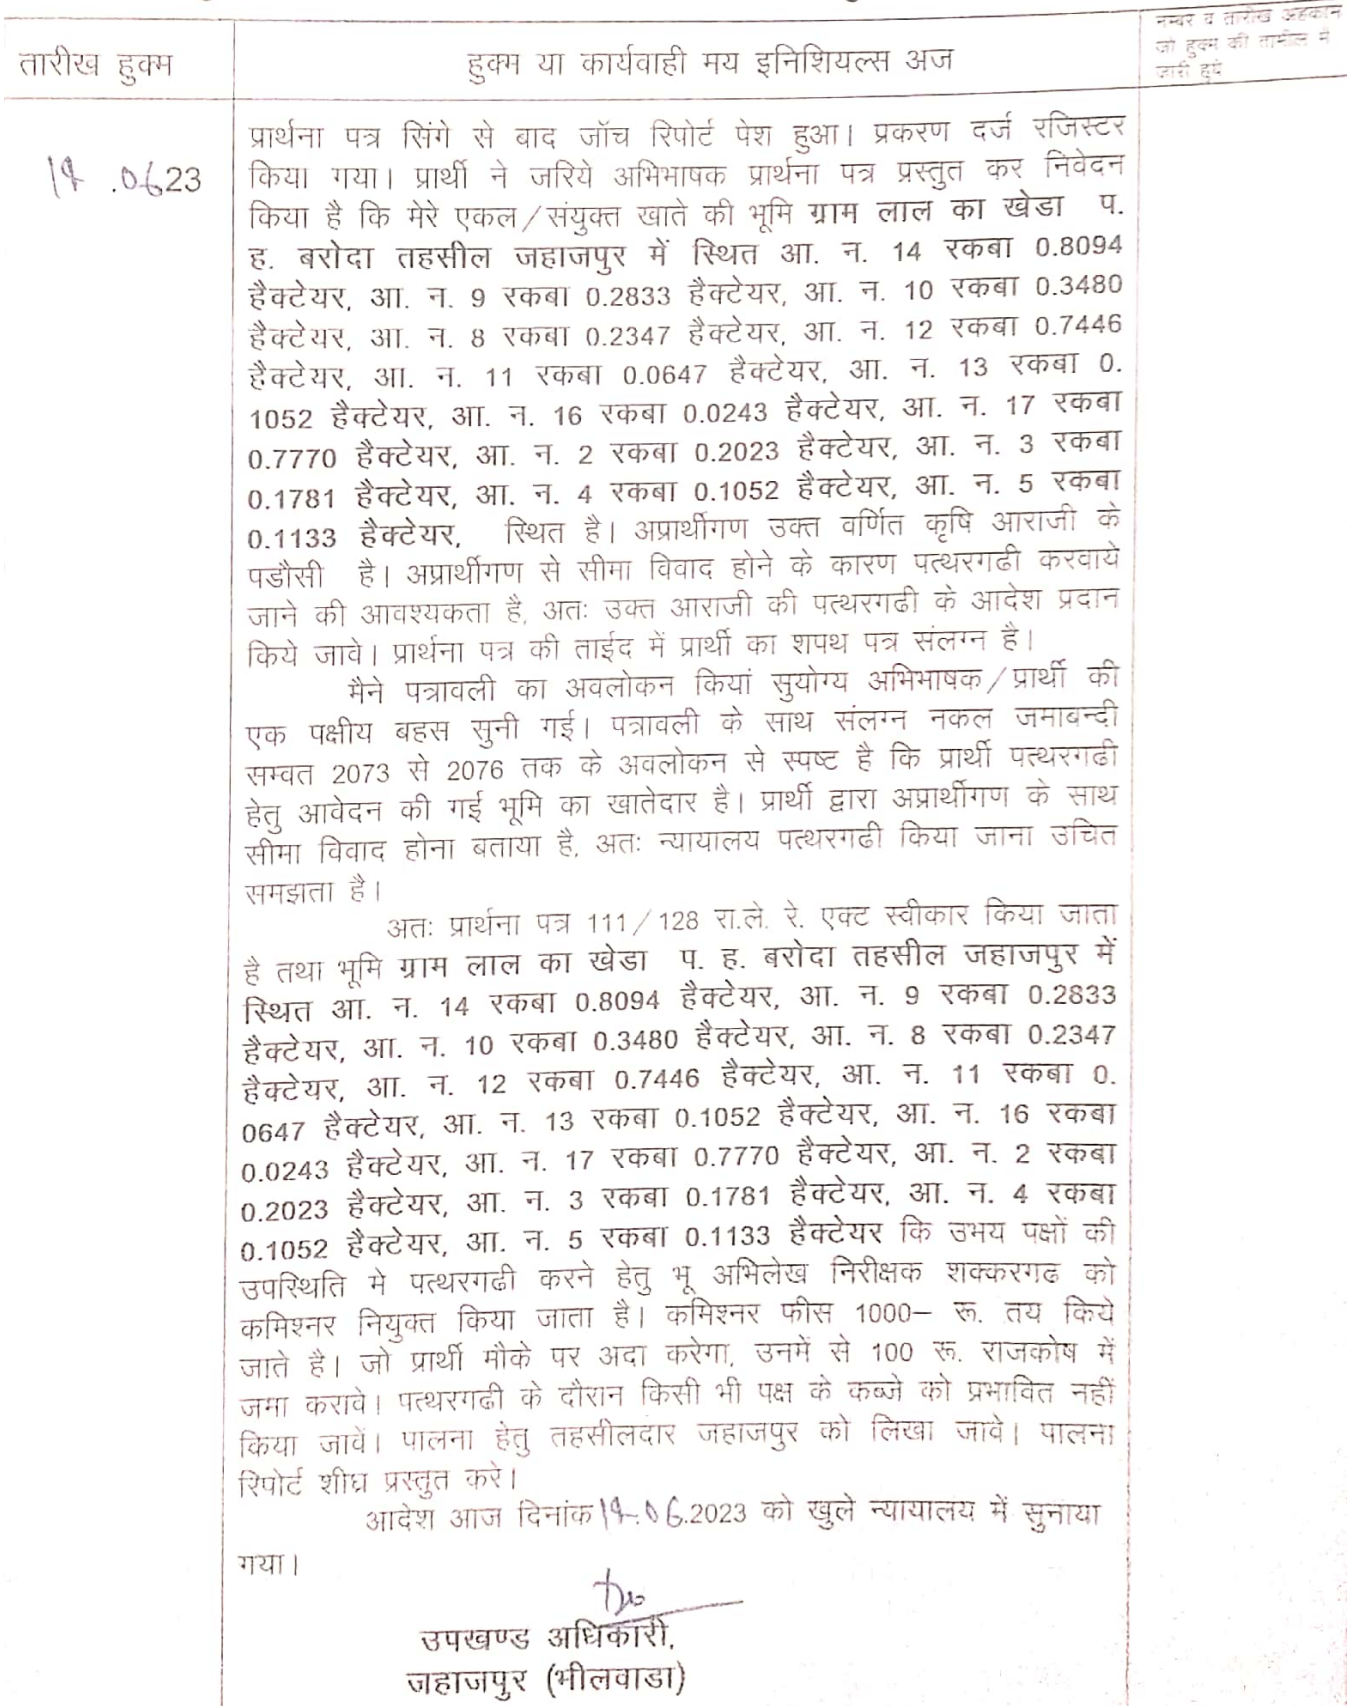 नम्बर व तारीख अहकाम
जो हुक्म की तामील में
जारी हुये
तारीख हुक्म
हुक्म या कार्यवाही मय इनिशियल्स अज
.0623
प्रार्थना पत्र सिंगे से बाद जॉच रिपोर्ट पेश हुआ। प्रकरण दर्ज रजिस्टर
किया गया। प्रार्थी ने जरिये अभिभाषक प्रार्थना पत्र प्रस्तुत कर निवेदन
किया है कि मेरे एकल/संयुक्त खाते की भूमि ग्राम लाल का खेडा प.
ह. बरोदा तहसील जहाजपुर में स्थित आ. न. 14 रकबा 0.8094
हैक्टेयर, आ. न. 9 रकबा 0.2833 हैक्टेयर, आ. न. 10 रकबा 0.3480
हैक्टेयर, आ. न. 8 रकबा 0.2347 हैक्टेयर, आ. न. 12 रकबा 0.7446
हैक्टेयर, आ. न. 11 रकबा 0.0647 हैक्टेयर, आ. न. 13 रकबा 0.
1052 हैक्टेयर, आ. न. 16 रकबा 0.0243 हैक्टेयर, आ. न. 17 रकबा
0.7770 हैक्टेयर, आ. न. 2 रकबा 0.2023 हैक्टेयर, आ. न. 3 रकबा
0.1781 हैक्टेयर, आ. न. 4 रकबा 0.1052 हैक्टेयर, आ. न. 5 रकबा
0.1133 हैक्टेयर, स्थित है। अप्रार्थीगण उक्त वर्णित कृषि आराजी के
पडौसी है। अप्रार्थीगण से सीमा विवाद होने के कारण पत्थरगढी करवाये
जाने की आवश्यकता है, अतः उक्त आराजी की पत्थरगढी के आदेश प्रदान
किये जावे। प्रार्थना पत्र की ताईद में प्रार्थी का शपथ पत्र संलग्न है।
मैने पत्रावली का अवलोकन कियां सुयोग्य अभिभाषक/प्रार्थी की
एक पक्षीय बहस सुनी गई। पत्रावली के साथ संलग्न नकल जमाबन्दी
सम्वत 2073 से 2076 तक के अवलोकन से स्पष्ट है कि प्रार्थी पत्थरगढी
हेतु आवेदन की गई भूमि का खातेदार है। प्रार्थी द्वारा अप्रार्थीगण के साथ
सीमा विवाद होना बताया है, अतः न्यायालय पत्थरगढी किया जाना उचित
समझता है।
अतः प्रार्थना पत्र 111/128 रा.ले. रे. एक्ट स्वीकार किया जाता
है तथा भूमि ग्राम लाल का खेडा प. ह. बरोदा तहसील जहाजपुर में
स्थित आ. न. 14 रकबा 0.8094 हैक्टेयर, आ. न. 9 रकबा 0.2833
हैक्टेयर, आ. न. 10 रकबा 0.3480 हैक्टेयर, आ. न. 8 रकबा 0.2347
हैक्टेयर, आ. न. 12 रकबा 0.7446 हैक्टेयर, आ. न. 11 रकबा 0.
0647 हैक्टेयर, आ. न. 13 रकबा 0.1052 हैक्टेयर, आ. न. 16 रकबा
0.0243 हैक्टेयर, आ. न. 17 रकबा 0.7770 हैक्टेयर, आ. न. 2 रकबा
0.2023 हैक्टेयर, आ. न. 3 रकबा 0.1781 हैक्टेयर, आ. न. 4 रकबा
0.1052 हैक्टेयर, आ. न. 5 रकबा 0.1133 हैक्टेयर कि उभय पक्षों की
उपस्थिति मे पत्थरगढी करने हेतु भू अभिलेख निरीक्षक शक्करगढ को
कमिश्नर नियुक्त किया जाता है। कमिश्नर फीस 1000– रू. तय किये
जाते है। जो प्रार्थी मौके पर अदा करेगा, उनमें से 100 रू. राजकोष में
जमा करावे। पत्थरगढी के दौरान किसी भी पक्ष के कब्जे को प्रभावित नहीं
किया जावें। पालना हेतु तहसीलदार जहाजपुर को लिखा जावे। पालना
रिपोर्ट शीघ्र प्रस्तुत करे।
आदेश आज दिनांक .06.2023 को खुले न्यायालय में सुनाया
गया।
उपखण्ड अधिकारी,
जहाजपुर (भीलवाडा)